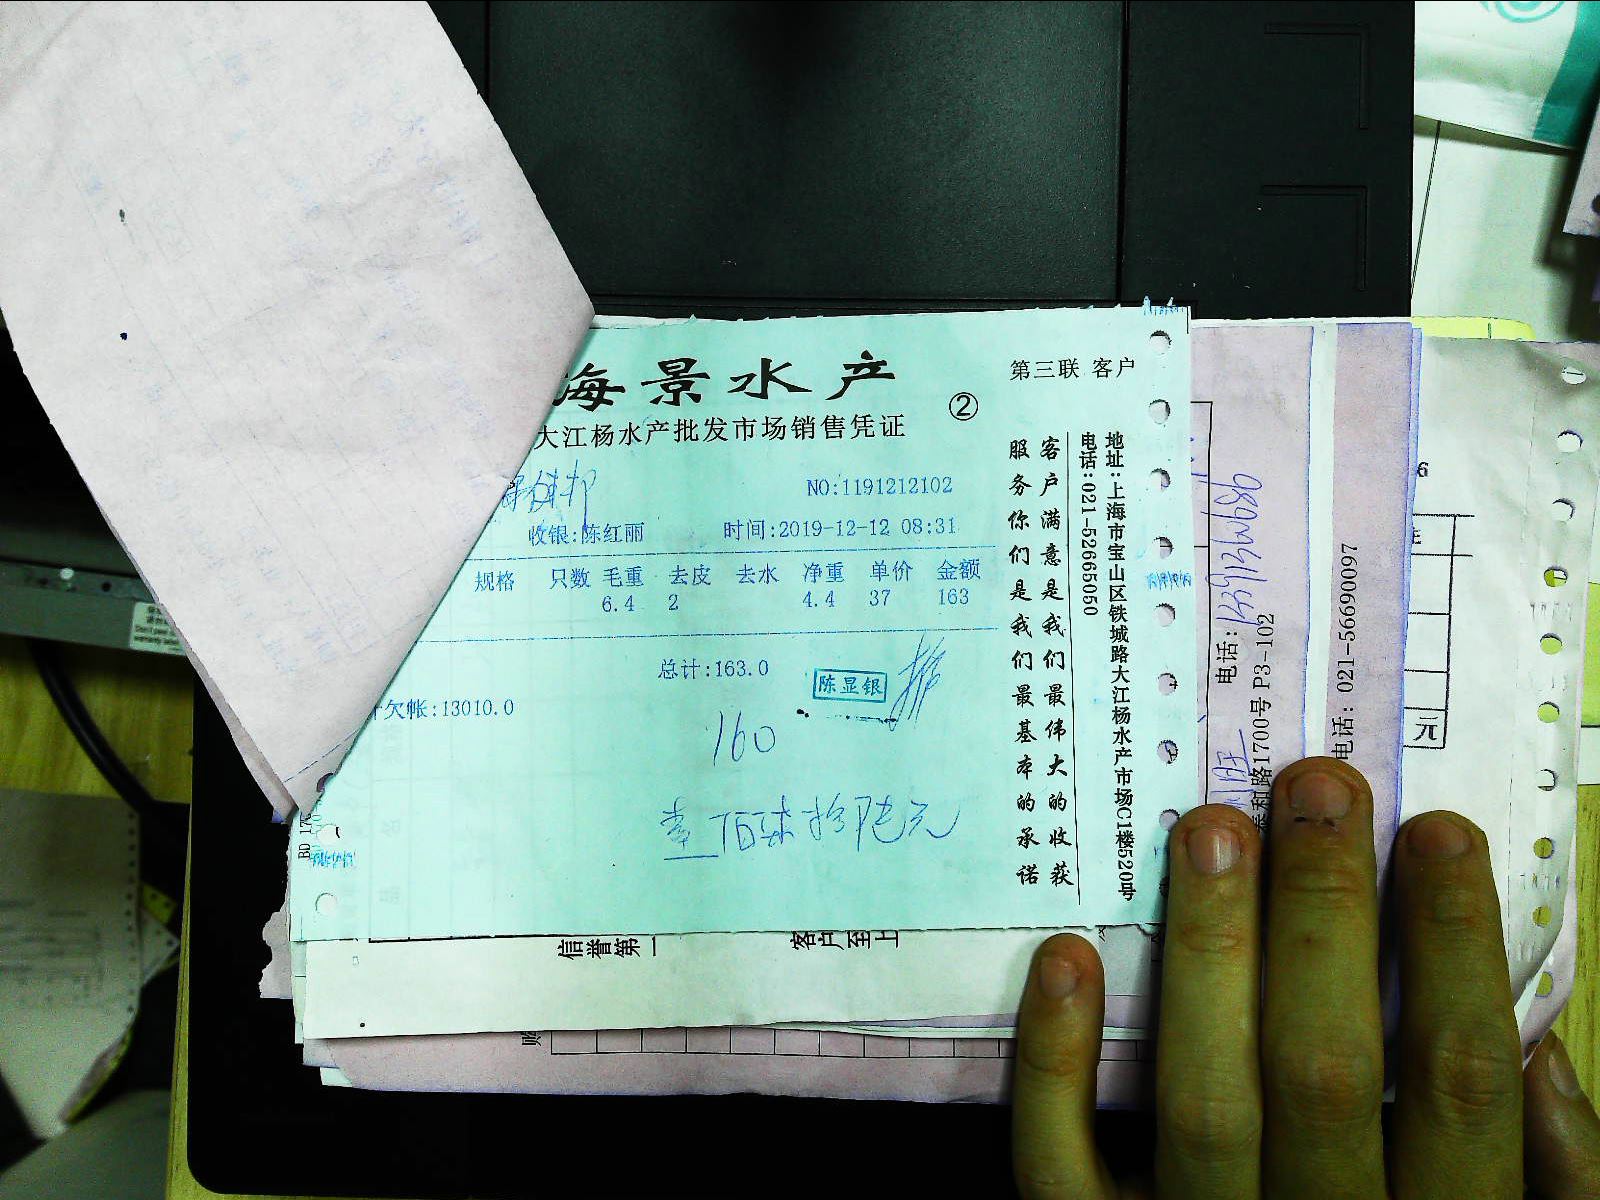 海景水产
②
第三联 客户
大江杨水产批发市场销售凭证
NO:1191212102
收银:陈红丽
时间:2019-12-12 08:31
规格 只数 毛重 去皮 去水 净重 单价 金额
6.4 2 4.4 37 163
总计:163.0
陈显银
欠帐:13010.0
160
客户满意是我们最伟大的收获
服务你们是我们最基本的承诺
地址:上海市宝山区铁城路大江杨水产市场C1楼520号
电话:021-52665050
信誉第一
客户至上
电话:
泰和路1700号P3-102
电话: 021-56690097
元